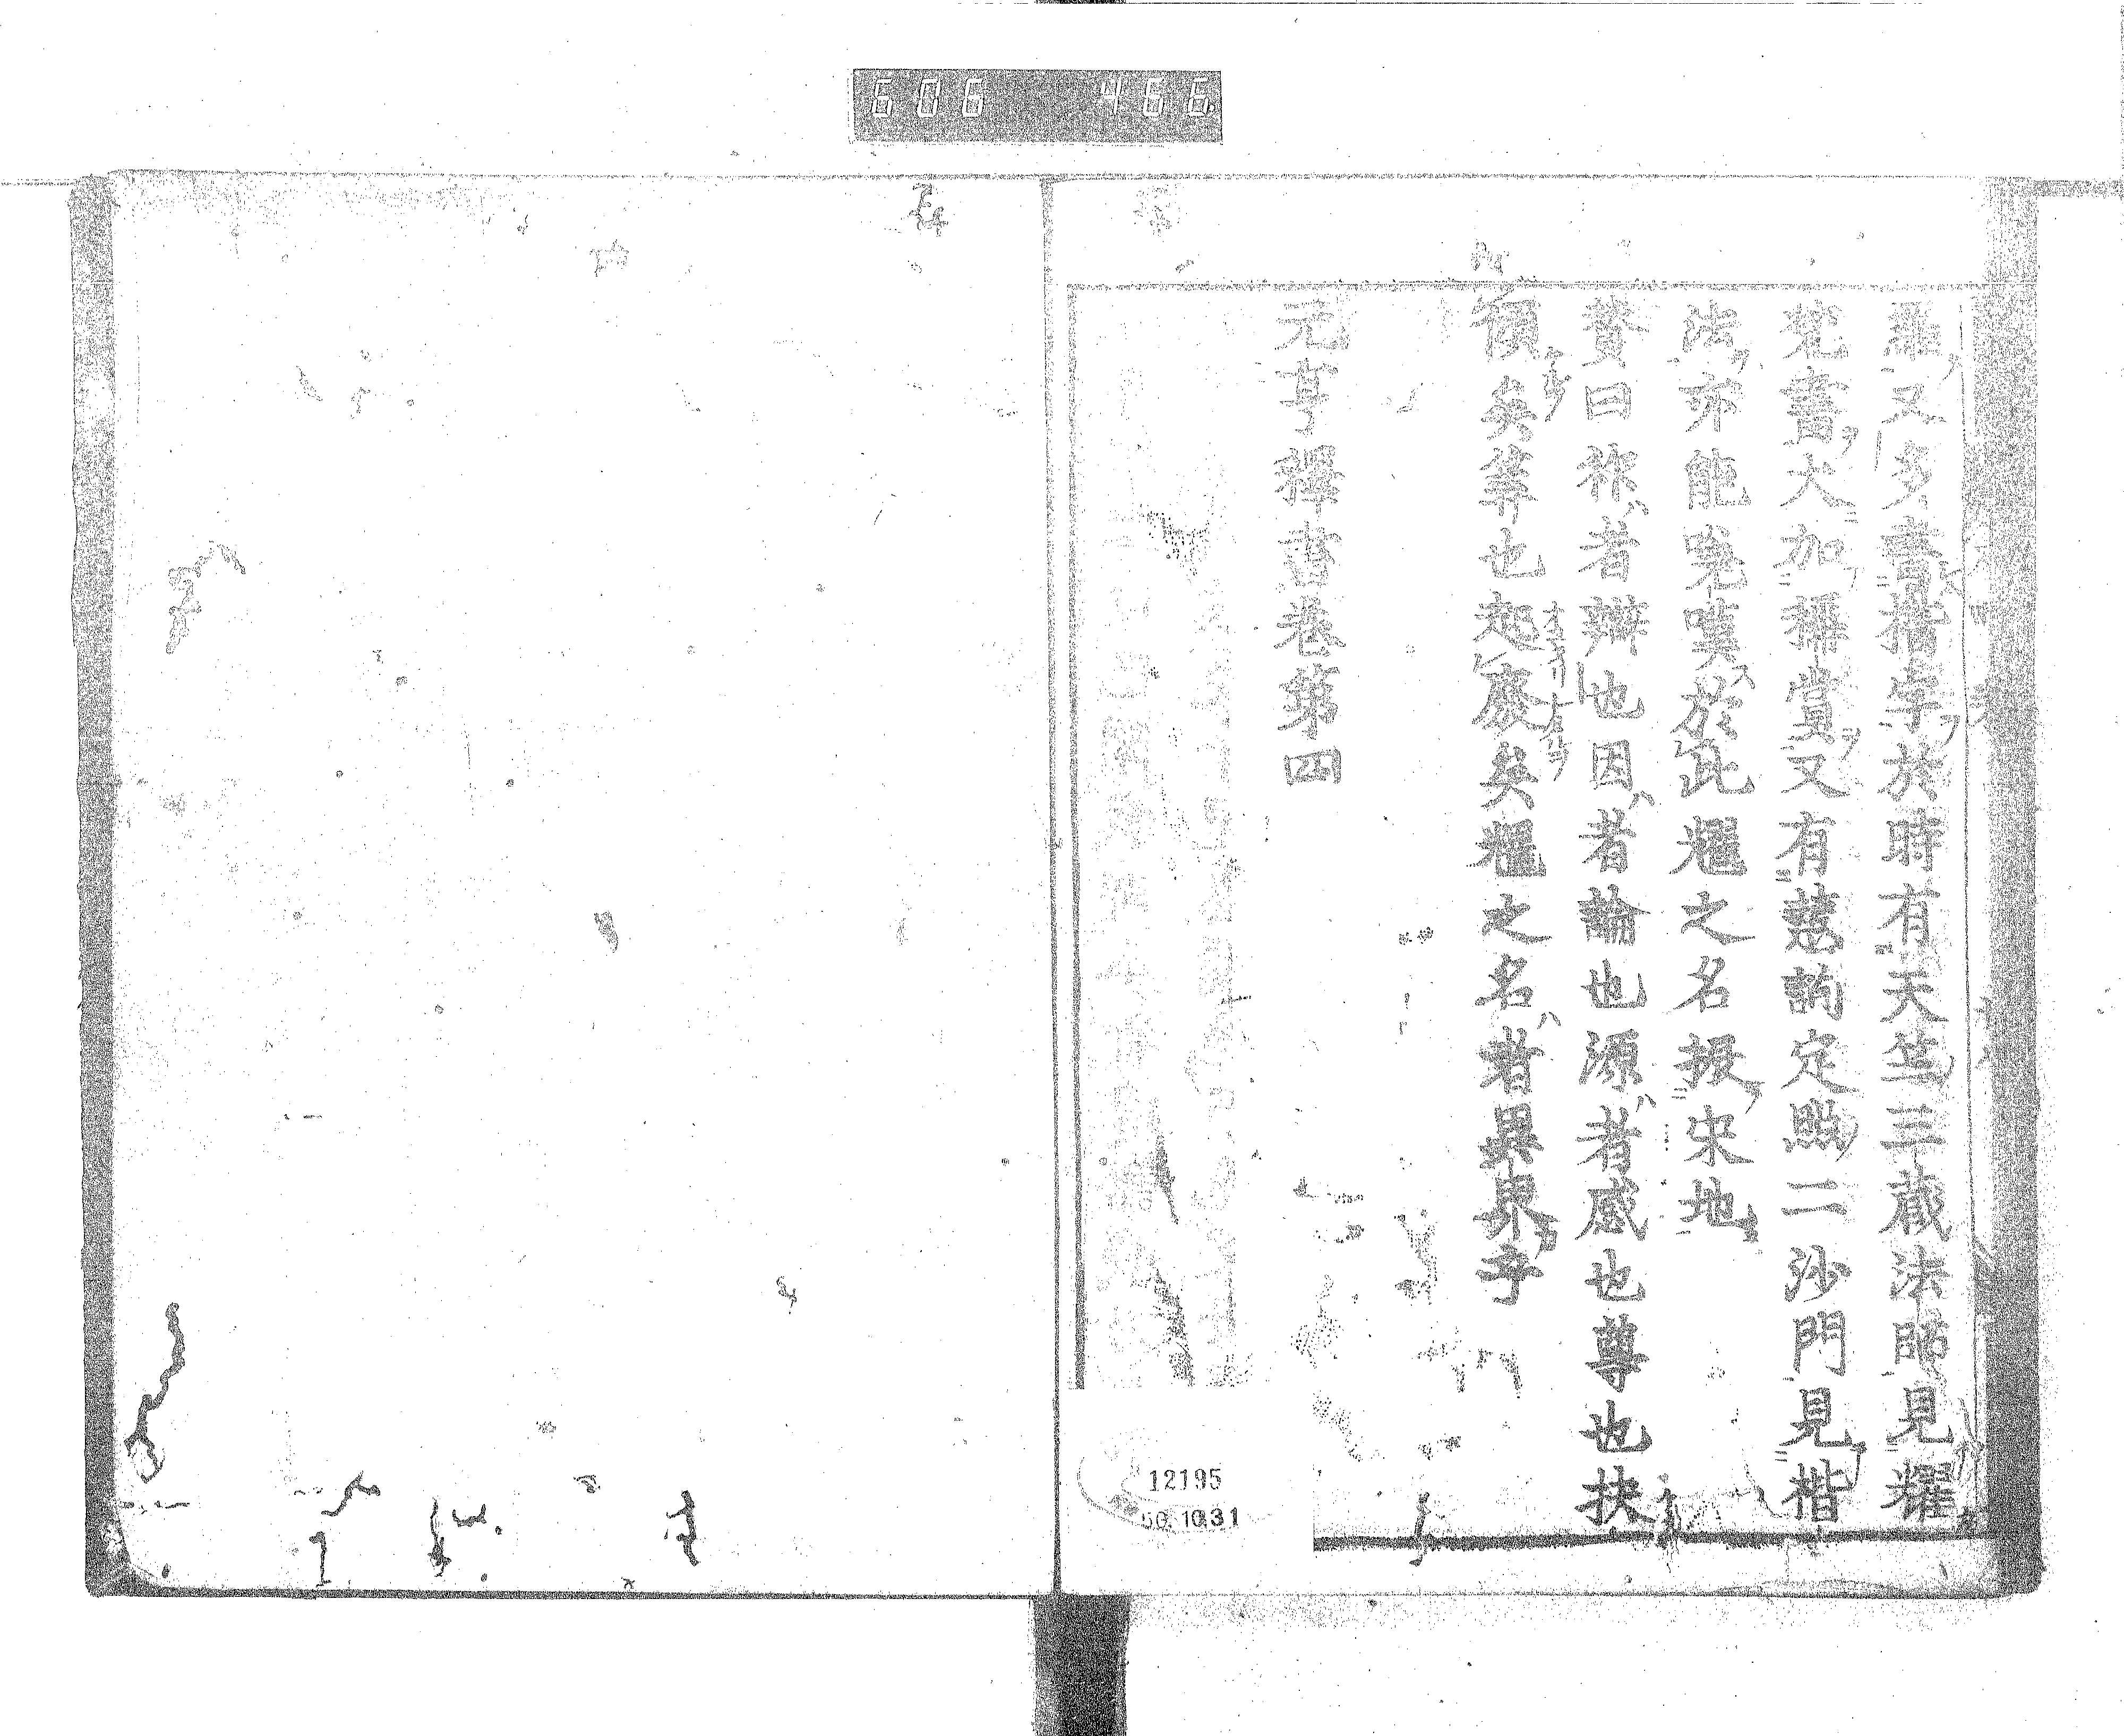 606 466
羅又多書楷字於時有天竺三蔵法師見耀
梵書大加稱賞又有慧詢定照二沙門見楷
法亦能嘆於此耀之名振宋地
賛曰祢者辯也因者論也源者感也尊也抉
矣等也起廢矣耀之名者異宗乎
元亨釋書巻第四
12195
50.10.31